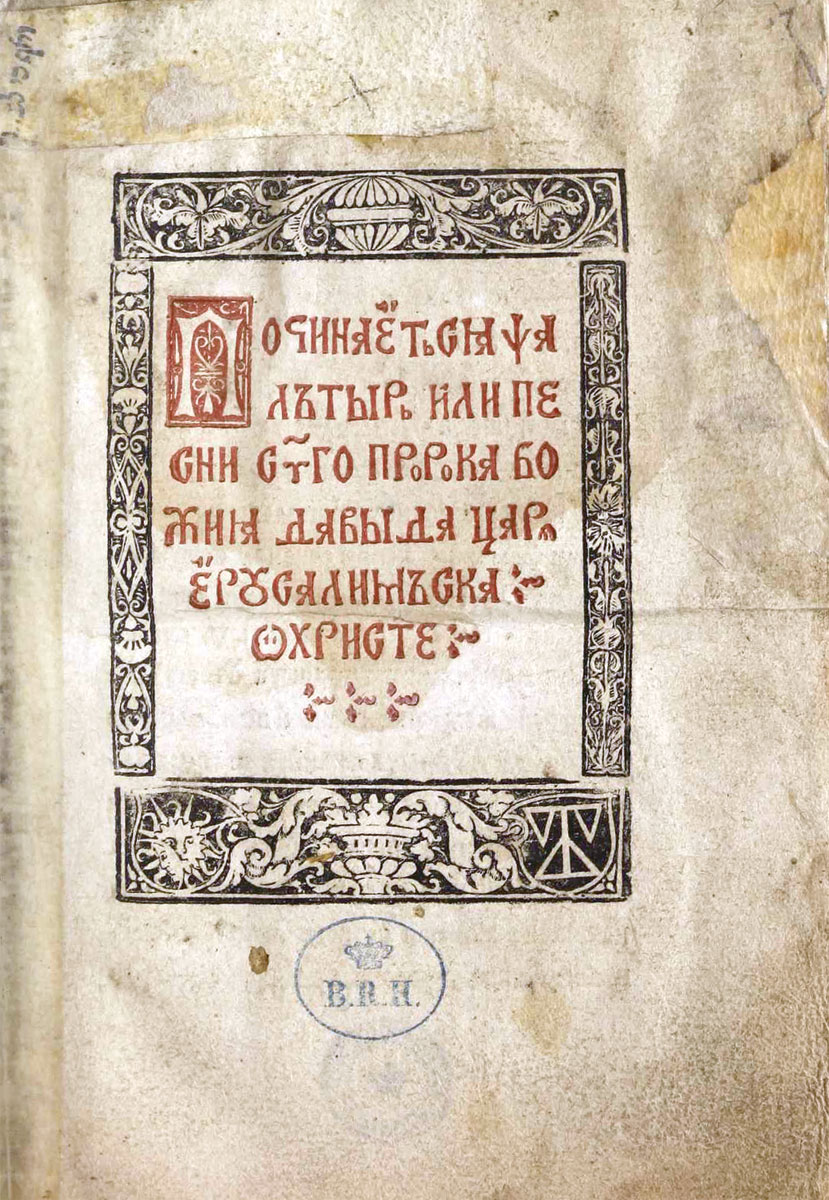 Починаеть сꙗ ѱа
лътырь или пе
сни ст҃го пророка бо
жиꙗ давыда царѧ
ерꙋсалимъска
ѡ христе
B.R.H.